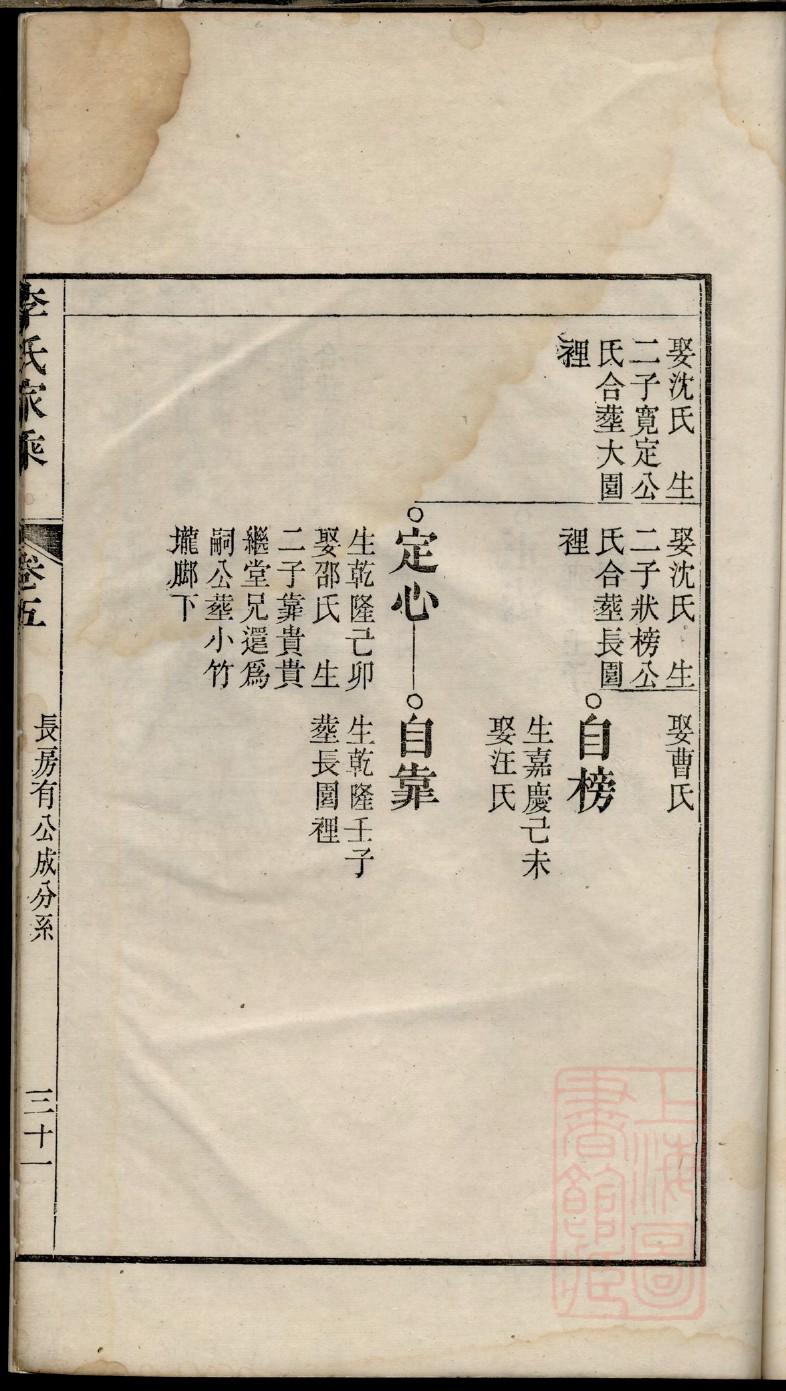 娶沈氏　生
二子寛定公
氏合塟大園
裡
娶沈氏　生
二子狀榜公
氏合塟長園
裡
娶曹氏
自榜
生嘉慶己未
娶汪氏
定心
生乾隆己卯
娶邵氏　生
二子靠貴貴
繼堂兄還爲
嗣公塟小竹
壠脚下
自靠
生乾隆壬子
塟長園裡
李氏家乘
卷五
長房有公成分系
三十一
上海圖
書館藏